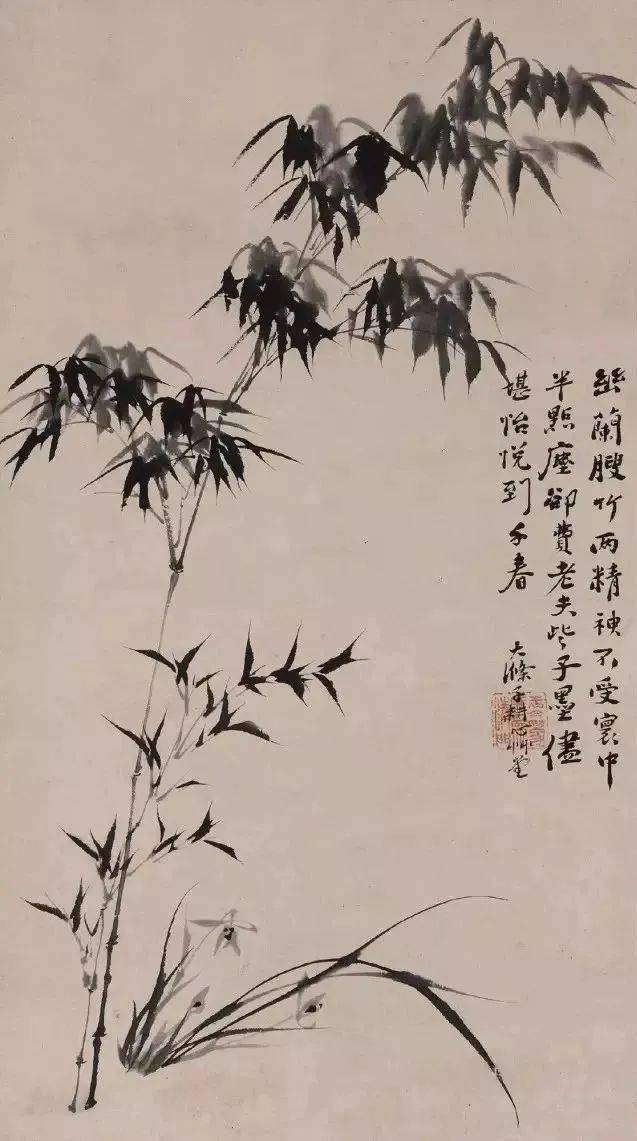 幽蘭膄竹两精神不受寰中
半點塵卻費老夫些子墨儘
堪怡悅到千春
大滌子耕心艸堂